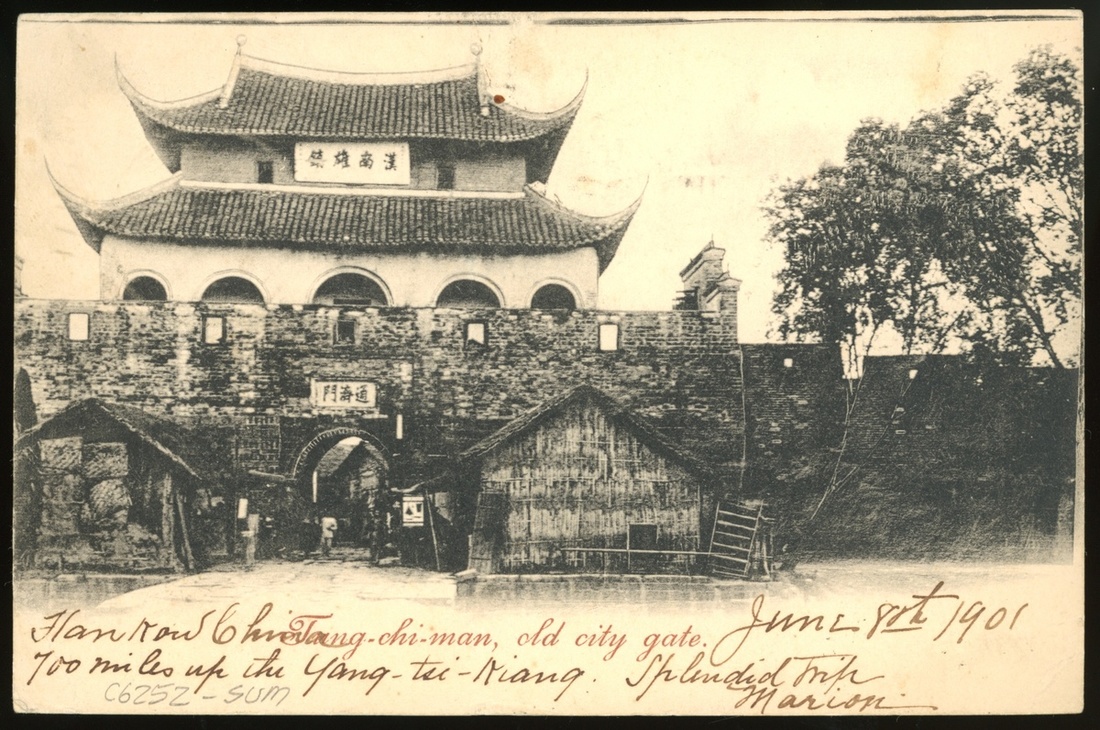 漢南雄鎮
通濟門
Hankow China
Tung-chi-man, old city gate.
June 8th 1901
700 miles up the Yang-tsi-Kiang. Splendid Trip
Marion
C6252-SUM